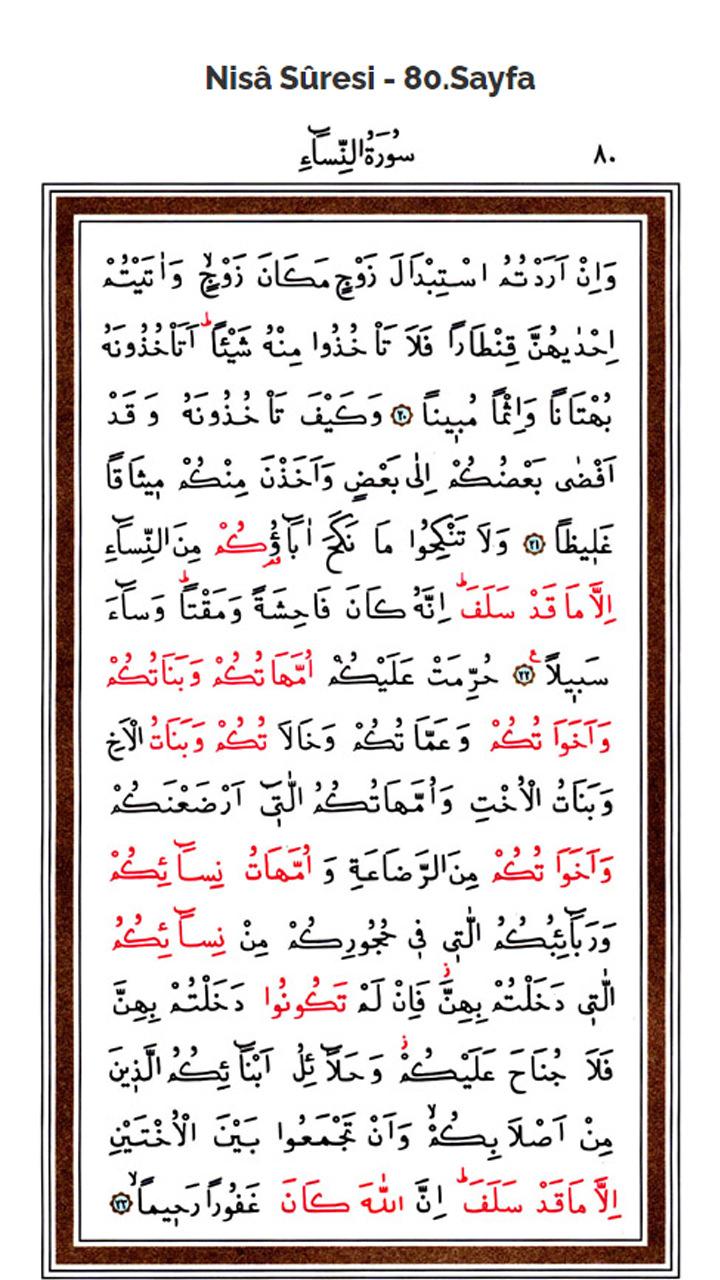 Nisâ Sûresi - 80.Sayfa
سُورَةُ النِّسَٓاءِ ٨٠
وَاِنْ اَرَدْتُمُ اسْتِبْدَالَ زَوْجٍ مَكَانَ زَوْجٍۙ وَاٰتَيْتُمْ
اِحْدٰيهُنَّ قِنْطَاراً فَلَا تَأْخُذُوا مِنْهُ شَيْـٔاًۜ اَتَأْخُذُونَهُ
بُهْتَاناً وَاِثْماً مُبٖيناً ﴿٢٠﴾ وَكَيْفَ تَأْخُذُونَهُ وَقَدْ
اَفْضٰى بَعْضُكُمْ اِلٰى بَعْضٍ وَاَخَذْنَ مِنْكُمْ مٖيثَاقاً
غَلٖيظاً ﴿٢١﴾ وَلَا تَنْكِحُوا مَا نَكَحَ اٰبَٓاؤُ۬كُمْ مِنَ النِّسَٓاءِ
اِلَّا مَا قَدْ سَلَفَۜ اِنَّهُ كَانَ فَاحِشَةً وَمَقْتاًۜ وَسَٓاءَ
سَبٖيلاً ﴿٢٢﴾ۚ حُرِّمَتْ عَلَيْكُمْ اُمَّهَاتُكُمْ وَبَنَاتُكُمْ
وَاَخَوَاتُكُمْ وَعَمَّاتُكُمْ وَخَالَاتُكُمْ وَبَنَاتُ الْاَخِ
وَبَنَاتُ الْاُخْتِ وَاُمَّهَاتُكُمُ الّٰتٖٓي اَرْضَعْنَكُمْ
وَاَخَوَاتُكُمْ مِنَ الرَّضَاعَةِ وَاُمَّهَاتُ نِسَٓائِكُمْ
وَرَبَٓائِبُكُمُ الّٰتٖي فٖي حُجُورِكُمْ مِنْ نِسَٓائِكُمُ
الّٰتٖي دَخَلْتُمْ بِهِنَّؗ فَاِنْ لَمْ تَكُونُوا دَخَلْتُمْ بِهِنَّ
فَلَا جُنَاحَ عَلَيْكُمْؗ وَحَلَٓائِلُ اَبْنَٓائِكُمُ الَّذٖينَ
مِنْ اَصْلَابِكُمْۙ وَاَنْ تَجْمَعُوا بَيْنَ الْاُخْتَيْنِ
اِلَّا مَا قَدْ سَلَفَۜ اِنَّ اللّٰهَ كَانَ غَفُوراً رَحٖيماًۙ ﴿٢٣﴾